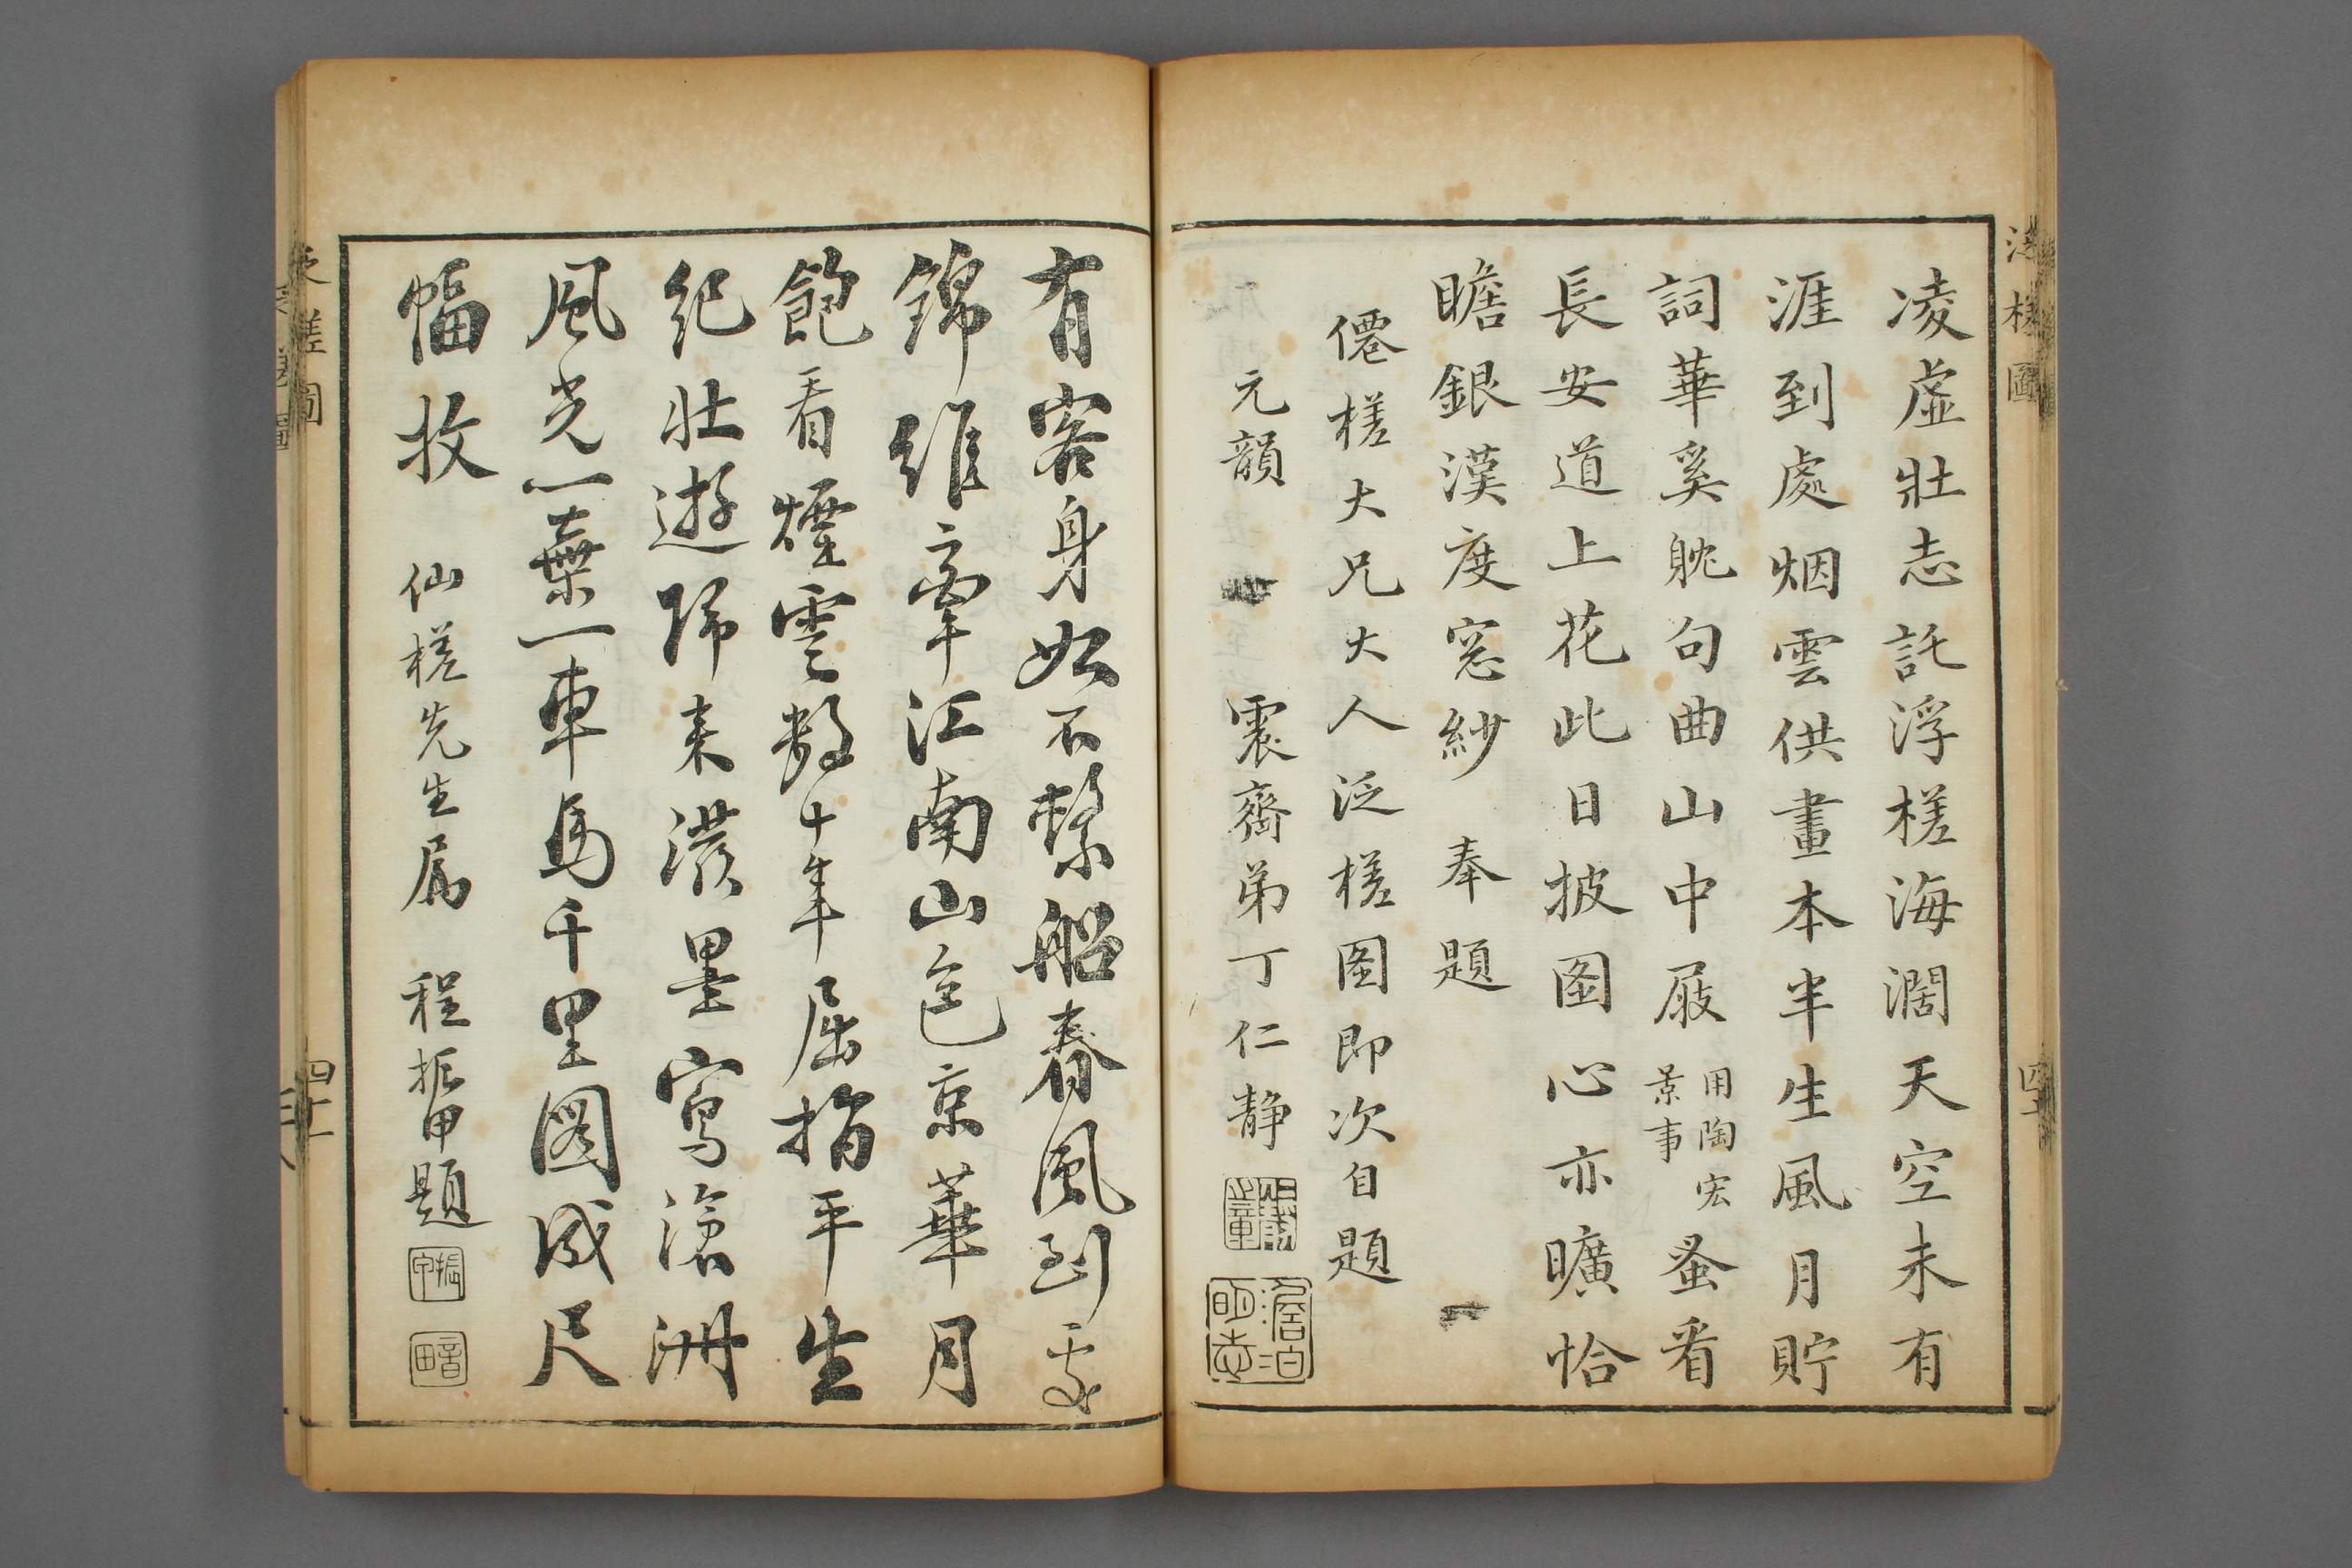 凌虛壯志託浮槎海濶天空未有
涯到處烟雲供畫本半生風月貯
詞華奚躭句曲山中屐用陶宏景事蚤看
長安道上花此日披图心亦曠恰
瞻銀漢度窓紗　奉題
僊槎大兄大人泛槎图即次自題
元韻　震齋弟丁仁静
澹泊明志
有客身如不繫船春風到處
錦維牽江南山色京華月
飽看煙雲數十年屈指平生
紀壯遊歸来潑墨寫滄洲
風光一葉一車馬千里圖成尺
幅收　仙槎先生属　程振甲題
四十一